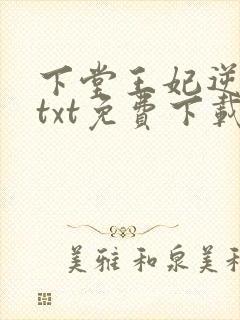 下堂王妃逆
txt免費下載
美雅和泉美和